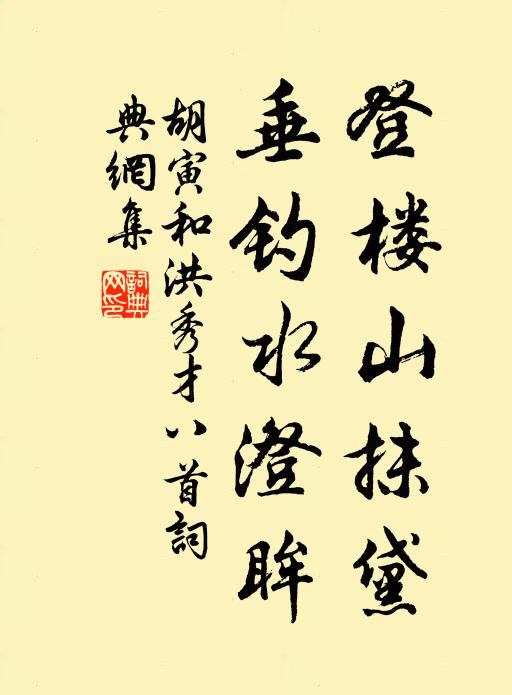 登楼山抹黛
垂钓水澄眸
胡寅和洪秀才八首詞
典網集
詞典网印